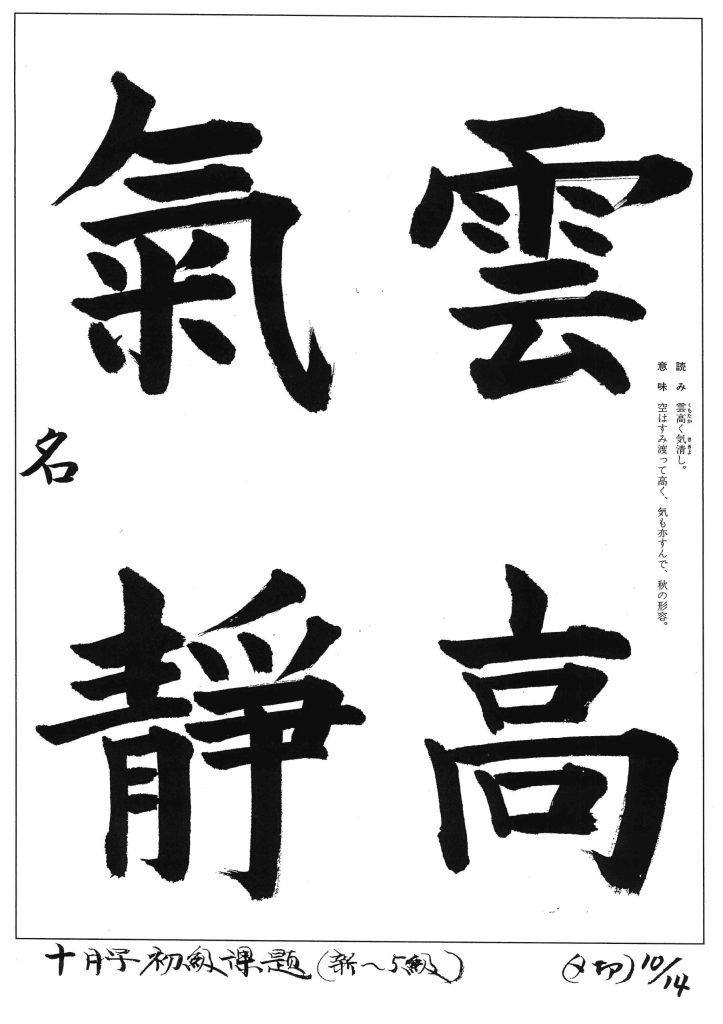 雲高
氣靜
読み　雲高く気清し。
くもたか　き きよ
意味　空はすみ渡って高く、気も亦すんで、秋の形容。
名
十月号初級課題（新〜5級）
（〆切）10/14